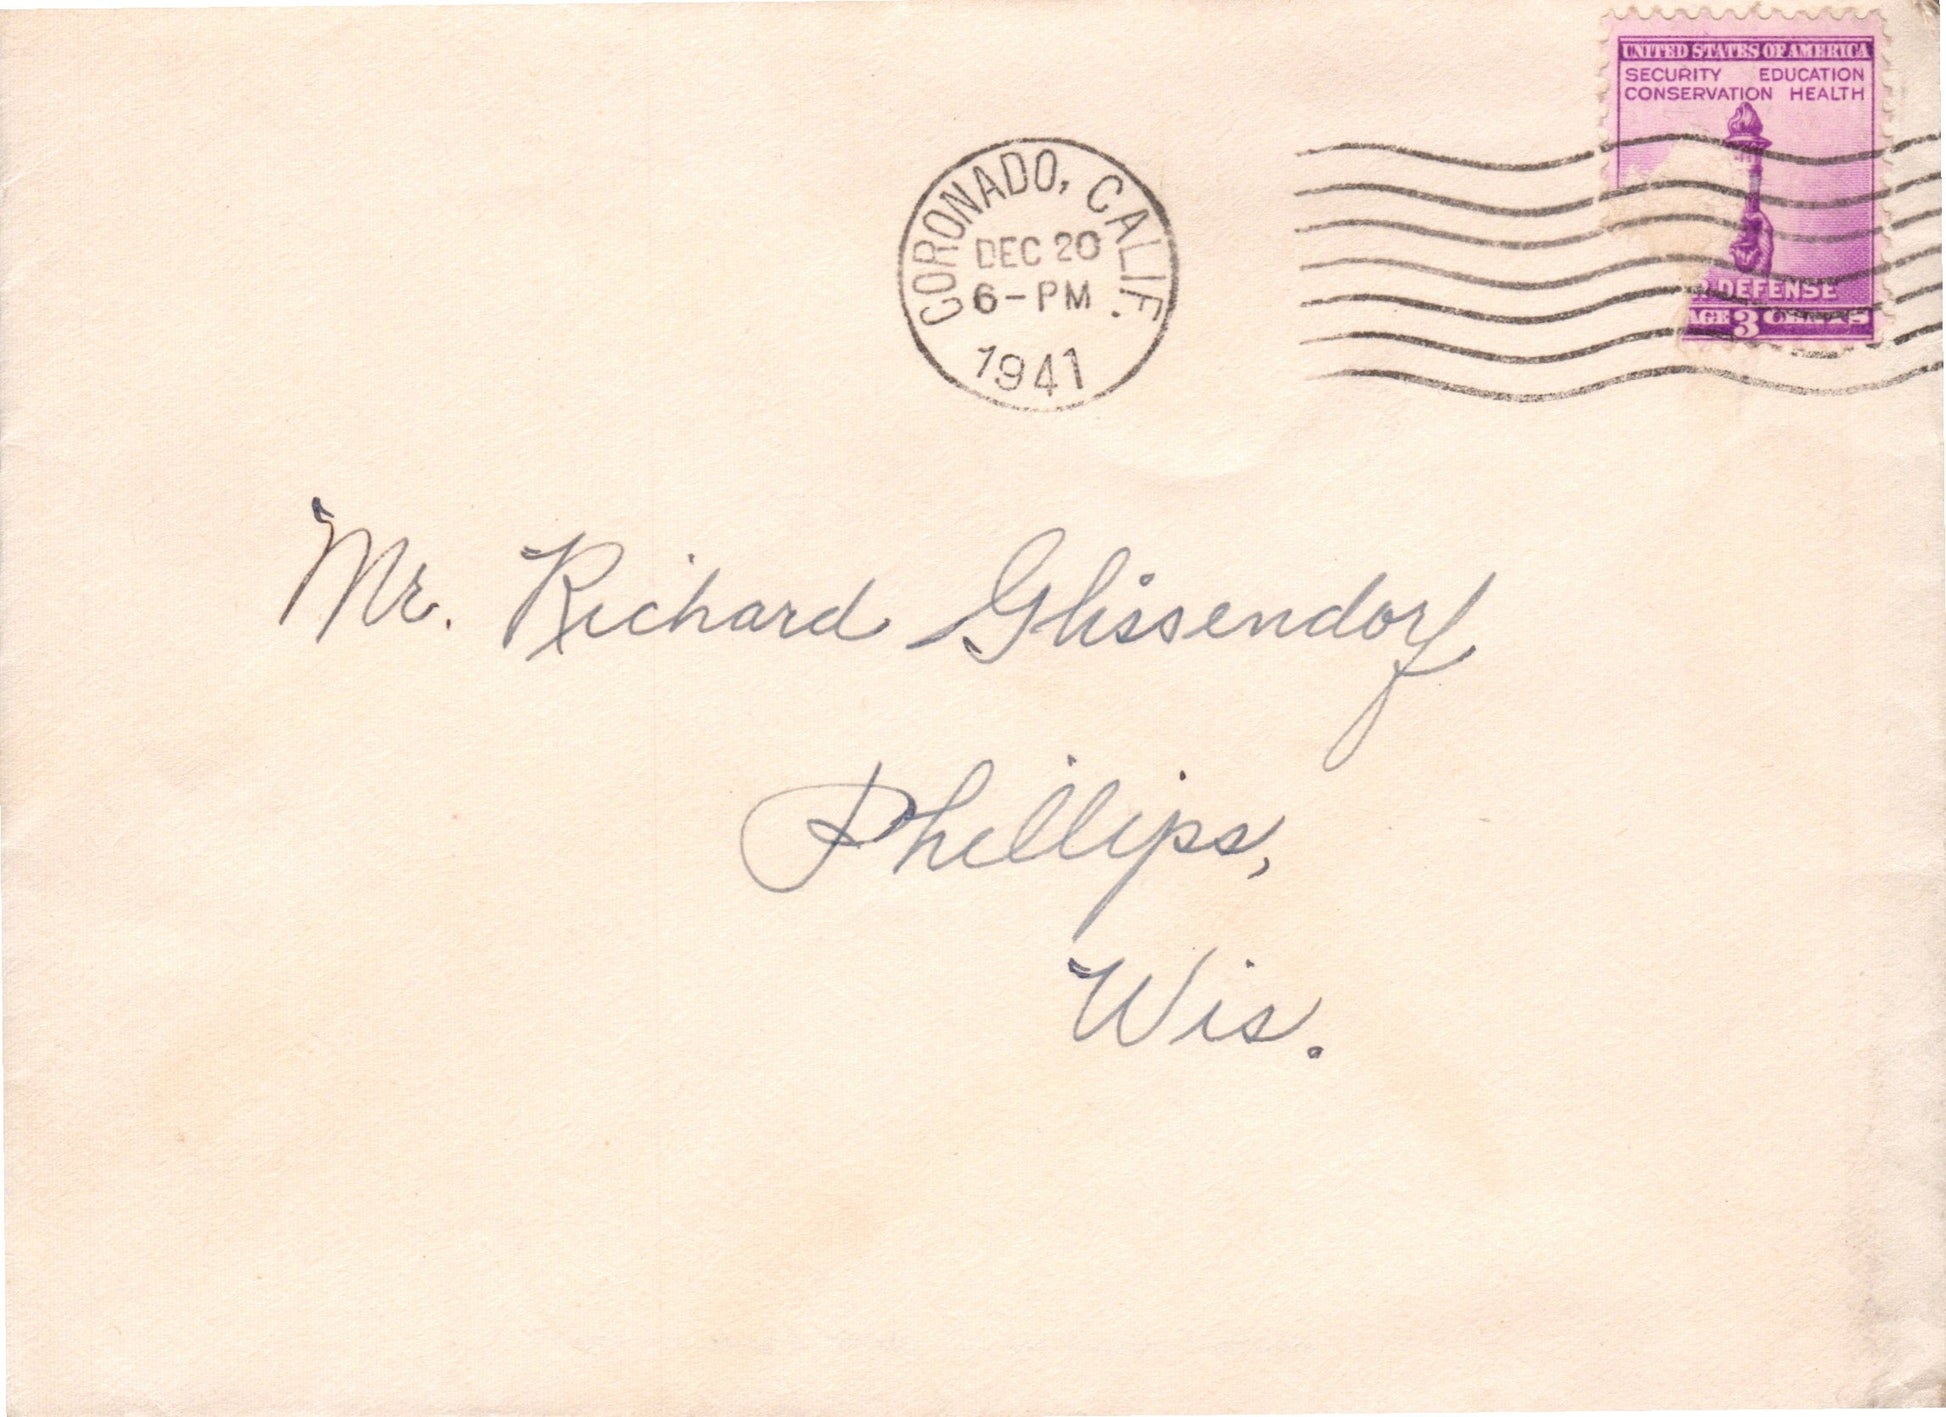 UNITED STATES OF AMERICA
SECURITY EDUCATION
CONSERVATION HEALTH
CORONADO, CALIF.
DEC 20
6-PM
1941
DEFENSE
3 CENTS
Mr. Richard Glissendorf
Phillips,
Wis.